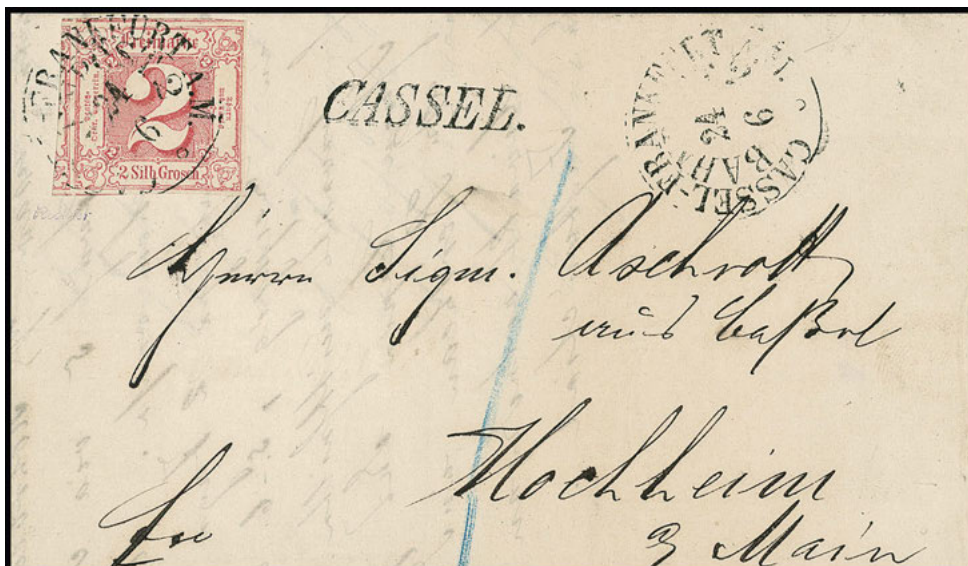 FRANKFURT A.M.
Freimarke
24
6
2
2 Silb Grosch
CASSEL.
CASSEL-FRANKFURT
24
6
BAHN
Herrn Sigm. Aschrott
aus Caßel
Hochheim
Main